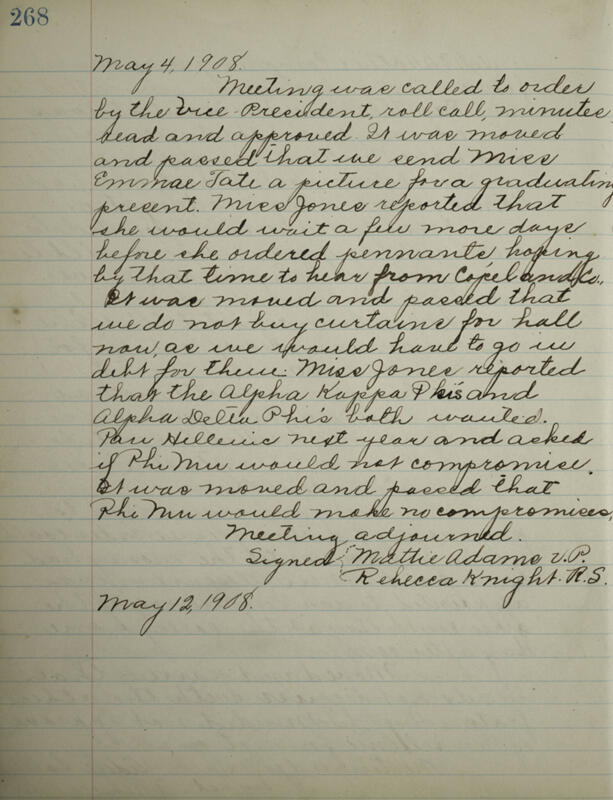 268
May 4, 1908.
Meeting was called to order
by the Vice-President, roll call, minutes
read and approved. It was moved
and passed that we send Miss
Emmae Tate a picture for a graduating
present. Miss Jones reported that
she would wait a few more days
before she ordered pennants, hoping
by that time to hear from Copeland Co.,
It was moved and passed that
we do not buy curtains for hall
now, as we would have to go in
debt for them. Miss Jones reported
that the Alpha Kappa Phi's and
Alpha Delta Phi's both wanted.
Pan Hellenic next year and asked
if Phi Mu would not compromise.
It was moved and passed that
Phi Mu would make no compromises.
Meeting adjourned.
Signed Mattie Adams V.P.
Rebecca Knight. R.S.
May 12, 1908.